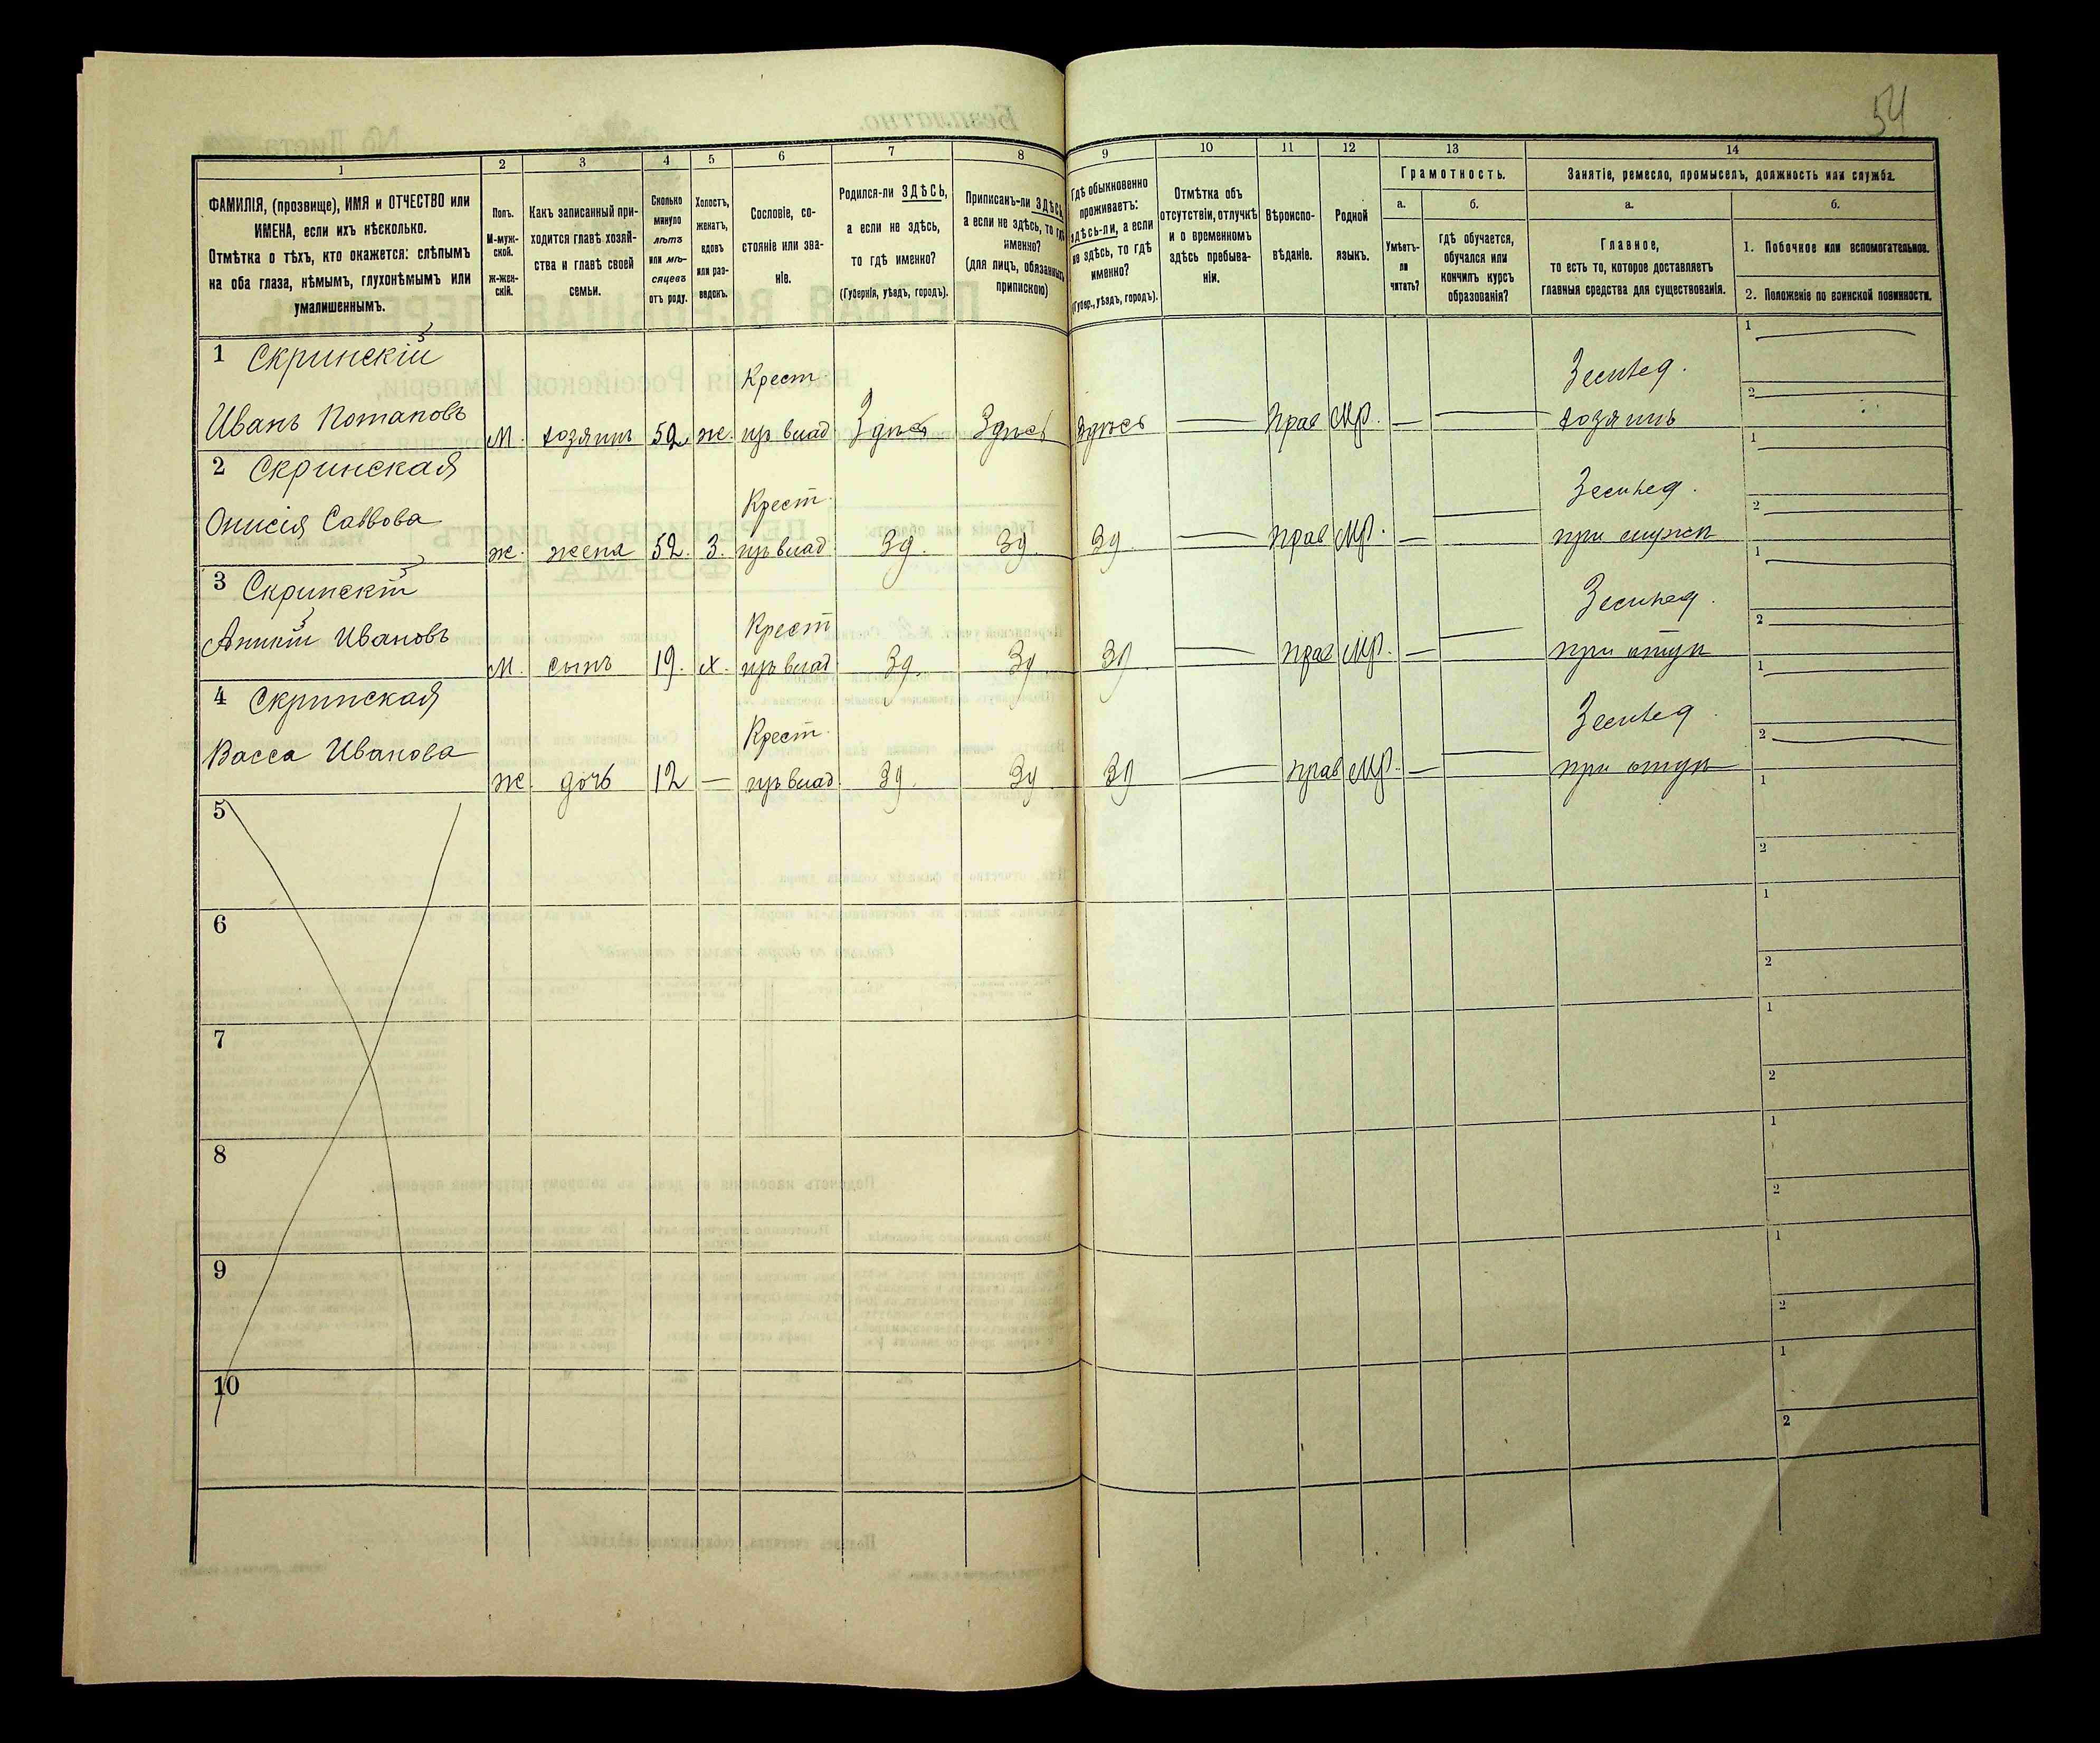 54
1 2 3 4 5 6 7 8 9 10 11 12 13 14
ФАМИЛІЯ, (прозвище), ИМЯ и ОТЧЕСТВО или
ИМЕНА, если ихъ нѣсколько.
Отмѣтка о тѣхъ, кто окажется: слѣпымъ
на оба глаза, нѣмымъ, глухонѣмымъ или
умалишеннымъ.
Полъ.
М-муж-
ской.
Ж-жен-
скій.
Какъ записанный при-
ходится главѣ хозяй-
ства и главѣ своей
семьи.
Сколько
минуло
лѣтъ
или мѣ-
сяцевъ
отъ роду.
Холостъ,
женатъ,
вдовъ
или раз-
веденъ.
Сословіе, со-
стояніе или зва-
ніе.
Родился-ли ЗДѢСЬ,
а если не здѣсь,
то гдѣ именно?
(Губернія, уѣздъ, городъ).
Приписанъ-ли ЗДѢСЬ,
а если не здѣсь, то гдѣ
именно?
(для лицъ, обязанныхъ
припискою)
Гдѣ обыкновенно
проживаетъ:
здѣсь-ли, а если
не здѣсь, то гдѣ
именно?
(Губер., уѣздъ, городъ).
Отмѣтка объ
отсутствіи, отлучкѣ
и о временномъ
здѣсь пребыва-
ніи.
Вѣроиспо-
вѣданіе.
Родной
языкъ.
Грамотность.
а.
Умѣетъ-
ли
читать?
б.
гдѣ обучается,
обучался или
кончилъ курсъ
образованія?
Занятіе, ремесло, промыселъ, должность или служба.
а.
Главное,
то есть то, которое доставляетъ
главныя средства для существованія.
б.
1. Побочное или вспомогательное.
2. Положеніе по воинской повинности.
1 Скринскій Крест Землед. 1
Иванъ Потаповъ М. хозяинъ 52 ж. пр влад Здѣсь Здѣсь Здѣсь — Прав Мр. — — хозяинъ 2
2 Скринская Крест. Землед. 1
Онисія Саввова ж. жена 52. З. пр влад Зд. Зд. Зд. — Прав Мр. — — при мужѣ 2
3 Скринскій Крест Землед. 1
Аникій Ивановъ М. сынъ 19. х. пр влад Зд. Зд. Зд. — Прав Мр. — — при отцѣ 2
4 Скринская Крест. Землед. 1
Васса Иванова ж. дочь 12 — пр влад Зд. Зд. Зд — Прав Мр. — — при отцѣ 2
5 1
2
6 1
2
7 1
2
8 1
2
9 1
2
10 1
2